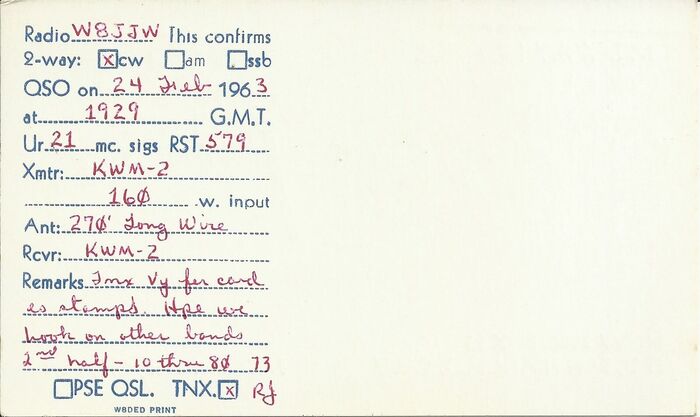 Radio W8JJW This confirms
2-way: [x]cw [ ]am [ ]ssb
QSO on 24 Feb 1963
at 1929 G.M.T.
Ur 21 mc. sigs RST 579
Xmtr: KWM-2
160 w. input
Ant: 270' Long Wire
Rcvr: KWM-2
Remarks Tnx Vy fer card
es stamps. Hpe we
hook on other bands
2nd half - 10 thru 80 73
[ ]PSE QSL. TNX.[x] RJ
W8DED PRINT